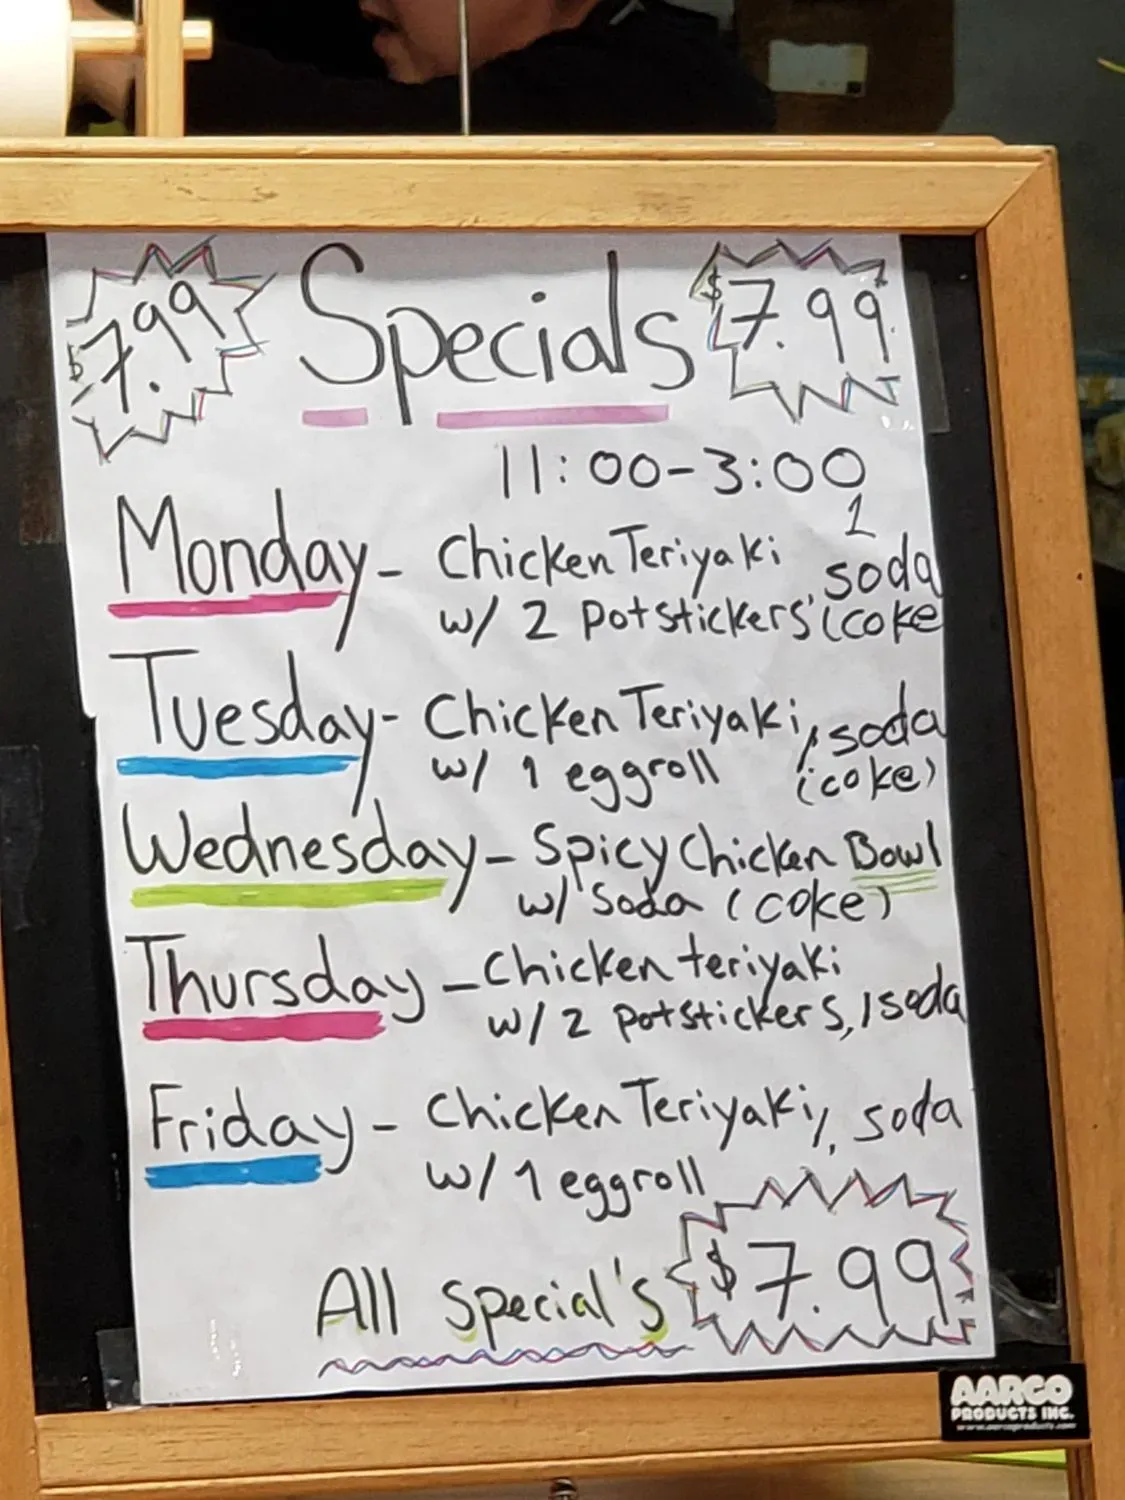 $7.99 Specials $7.99
11:00-3:00
Monday - Chicken Teriyaki 1 soda
w/ 2 potstickers, (coke
Tuesday - Chicken Teriyaki, soda
w/ 1 eggroll (coke)
Wednesday - Spicy Chicken Bowl
w/ soda (coke)
Thursday - Chicken teriyaki
w/ 2 potstickers, 1 soda
Friday - Chicken Teriyaki, soda
w/ 1 eggroll
All special's $7.99
AARCO
PRODUCTS INC.
www.aarcoproducts.com